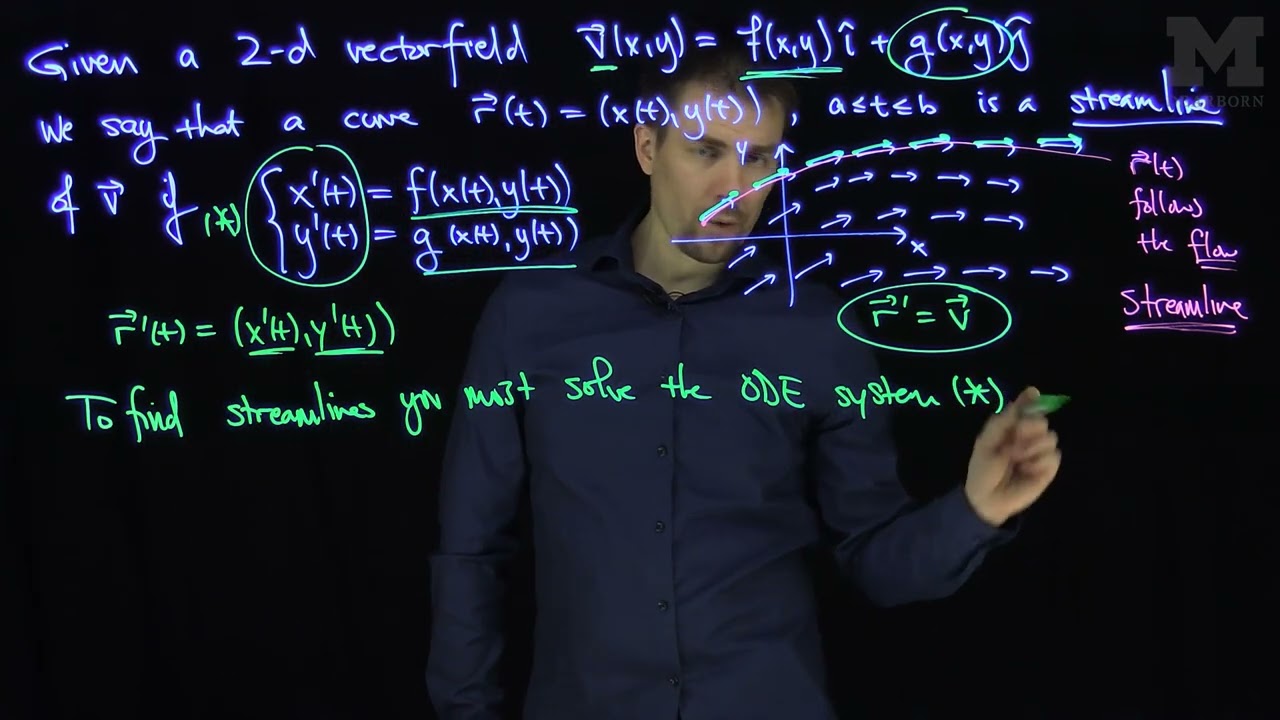 Given a 2-d vectorfield v⃗(x,y) = f(x,y) î + g(x,y) ĵ
we say that a curve r⃗(t) = (x(t), y(t)), a ≤ t ≤ b is a streamline
of v⃗ if (*) { x'(t) = f(x(t), y(t))
y'(t) = g(x(t), y(t))
y
x
r⃗(t)
follows
the flow
streamline
r⃗'(t) = (x'(t), y'(t))
r⃗' = v⃗
To find streamlines you must solve the ODE system (*)
M